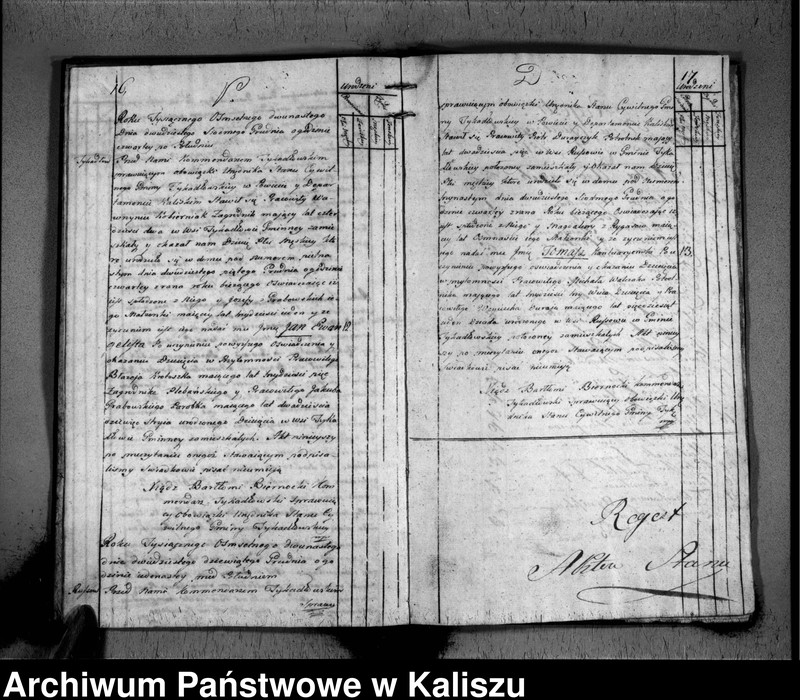 16
urodzeni
Roku Tysiącznego Osmsetnego dwunastego
Dnia dwudziestego Siodmego Grudnia o godzinie
czwartey po Południu
Tykadłow Przed Nami Kommendarzem Tykadłowskim
sprawuiącym obowiązki Urzędnika Stanu Cywil
nego Gminy Tykadłowskiey w Powiecie y Depar
tamencie Kaliskim Stawił się Pracowity Wa
wrzyniec Zagrodnik maiący lat czter
dzieści dwa w Wsi Tykadłowie Gminney zamie
szkały y okazał nam Dziecię Płci Męskiey któ
re urodziło się w domu pod Numerem
dnia dwudziestego piątego Grudnia o godzinie
czwartey z rana roku bieżącego Oświadczaiąc iż
iest spłodzone z Niego y Jozefy z Grabowskich ie
go Małżonki maiącey lat trzydzieści ieden y że
życzeniem iest iego nadać mu Imię Jan Ewan 12
gelista Po uczynieniu powyższego Oświadczenia y
okazaniu Dziecięcia w Przytomności Pracowitego
Błazeia maiącego lat trzydzieści pięć
Zagrodnika Plebańskiego y Pracowitego Jakuba
Grabowskiego Parobka maiącego lat dwadzieścia
dziewięc Stryia urodzonego Dziecięcia w wsi Tyka
dłowie Gminney zamieszkałych. Akt ninieyszy
po przeczytaniu onegoż Stawaiącym podpisa
liśmy Swiadkowie pisać nieumieią
Xiądz Bartłomi Biernacki Kom
mendarz Tykadłowski sprawuią
cy obowiązki Urzędnika Stanu Cy
wilnego Gminy Tykadłowskiey
Roku Tysiącznego Osmsetnego dwunastego
dnia dwudziestego dziewiątego Grudnia o go
dzinie iedenastey przed Południem
Russow Przed Nami Kommendarzem Tykadłowskim
Sprawu
17
urodzeni
sprawuiącym obowiązki Urzędnika Stanu Cywilnego Gmi
ny Tykadłowskiey w Powiecie y Departamencie Kaliskim
Stawił się Pracowity Piotr
lat dwadzieścia sześć w Wsi Russowie w Gminie Tyka
dłowskiey położoney zamieszkały y okazał nam Dziecię
Płci męskiey które urodziło się w domu pod Numerem
dnia dwudziestego Siodmego Grudnia o go
dzinie czwartey z rana Roku bieżącego Oświadczaiąc iż
iest spłodzone z Niego y Magdaleny z maią
cey lat Osmnaście iego Małżonki y że życzeniem iest
iego nadać mu Imię Tomasz Kantuaryenski Po u 13.
czynieniu powyższego oświadczenia y okazaniu Dziecięcia
w przytomności Pracowitego Michała
maiącego lat trzydzieści trzy Wuia Dziecięcia y Pra
cowitego Woyciecha maiącego lat
ieden Dziada urodzonego w Wsi Russowie w Gminie
Tykadłowskiey położoney zamieszkałych Akt ninieyszy
po przeczytaniu onegoż Stawaiącym podpisaliśmy
Swiadkowie pisać nieumieią
Xiądz Bartłomi Biernacki kommendarz
Tykadłowski sprawuiący obowiązki Urzę
dnika Stanu Cywilnego Gminy Tyk
Regestr
Aktów Stanu
Archiwum Państwowe w Kaliszu